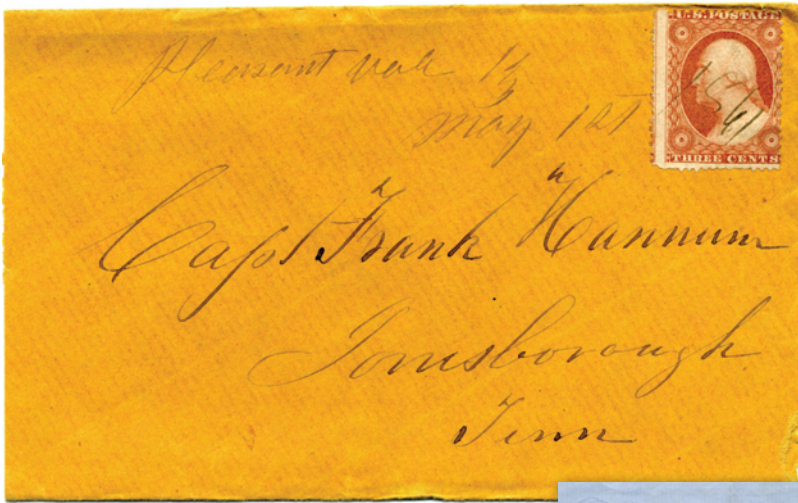 Pleasant vale Ky
May 1st
U.S. POSTAGE
1861
THREE CENTS
Capt Frank Hannum
Jonesborough
Tenn